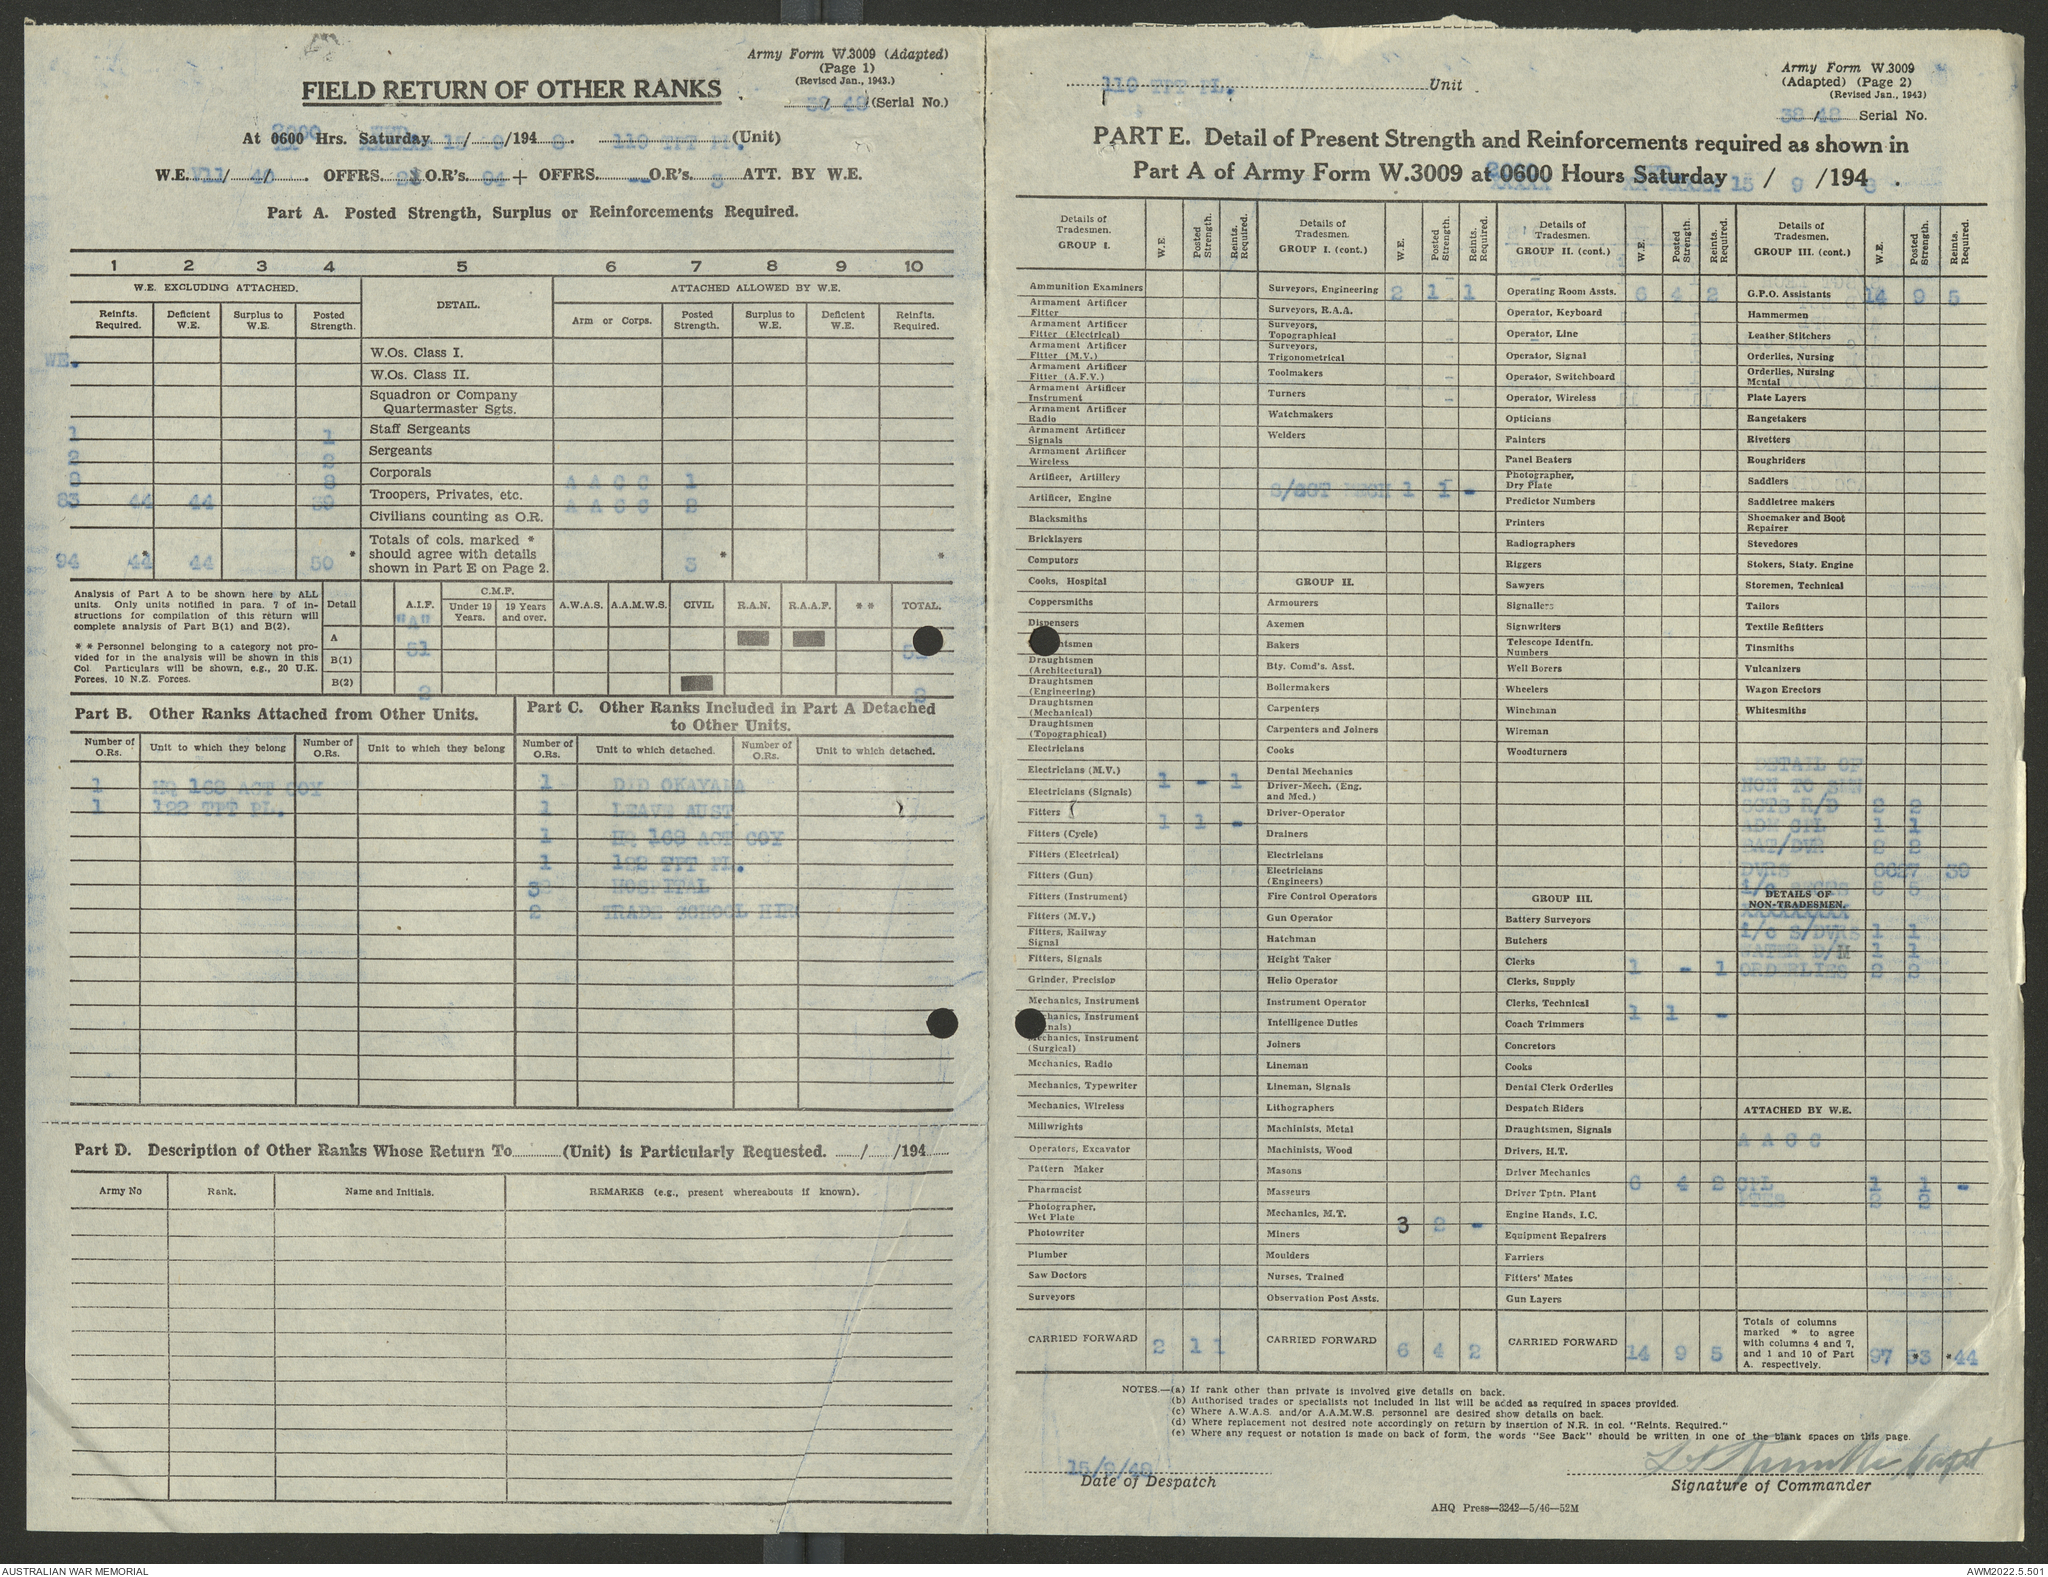 Army Form W.3009 (Adapted)
(Page 1)
(Revised Jan., 1943.)
FIELD RETURN OF OTHER RANKS
38/48 (Serial No.)
At 0600 Hrs. Saturday 15/9/1948. 119 TPT PL. (Unit)
W.E. V11/ 4 / . OFFRS. O.R's. 94 + OFFRS. - O.R's. 3 ATT. BY W.E.
Part A. Posted Strength, Surplus or Reinforcements Required.
1 2 3 4 5 6 7 8 9 10
W.E. EXCLUDING ATTACHED. DETAIL. ATTACHED ALLOWED BY W.E.
Reinfts. Required. Deficient W.E. Surplus to W.E. Posted Strength. Arm or Corps. Posted Strength. Surplus to W.E. Deficient W.E. Reinfts. Required.
WE. W.Os. Class I.
W.Os. Class II.
Squadron or Company
Quartermaster Sgts.
1 1 Staff Sergeants
2 2 Sergeants
8 8 Corporals A A C C 1
83 44 44 39 Troopers, Privates, etc. A A C C 2
Civilians counting as O.R.
94 44* 44 50* Totals of cols. marked * should agree with details shown in Part E on Page 2. 3* *
Analysis of Part A to be shown here by ALL
units. Only units notified in para. 7 of in-
structions for compilation of this return will
complete analysis of Part B(1) and B(2).
* * Personnel belonging to a category not pro-
vided for in the analysis will be shown in this
Col. Particulars will be shown, e.g., 20 U.K.
Forces, 10 N.Z. Forces.
Detail A.I.F. C.M.F. Under 19 Years. 19 Years and over. A.W.A.S. A.A.M.W.S. CIVIL R.A.N. R.A.A.F. * * TOTAL.
"A"
A
B(1) 51
B(2) 2 2
Part B. Other Ranks Attached from Other Units.
Number of O.Rs. Unit to which they belong Number of O.Rs. Unit to which they belong
1 HQ 168 AGT COY
1 122 TPT PL.
Part C. Other Ranks Included in Part A Detached
to Other Units.
Number of O.Rs. Unit to which detached. Number of O.Rs. Unit to which detached.
1 DID OKAYAMA
1 LEAVE AUST
1 HQ 168 AGT COY
1 122 TPT PL.
3 HOSPITAL
2 TRADE SCHOOL HIRO
Part D. Description of Other Ranks Whose Return To (Unit) is Particularly Requested. / /194
Army No Rank. Name and Initials. REMARKS (e.g., present whereabouts if known).
119 TPT PL. Unit
Army Form W.3009
(Adapted) (Page 2)
(Revised Jan., 1943)
38/48 Serial No.
PART E. Detail of Present Strength and Reinforcements required as shown in
Part A of Army Form W.3009 at 0600 Hours Saturday 15 / 9 /1948.
Details of Tradesmen. GROUP I. W.E. Posted Strength. Reints. Required.
Ammunition Examiners
Armament Artificer Fitter
Armament Artificer Fitter (Electrical)
Armament Artificer Fitter (M.V.)
Armament Artificer Fitter (A.F.V.)
Armament Artificer Instrument
Armament Artificer Radio
Armament Artificer Signals
Armament Artificer Wireless
Artificer, Artillery
Artificer, Engine
Blacksmiths
Bricklayers
Computors
Cooks, Hospital
Coppersmiths
Dispensers
Draughtsmen (Architectural)
Draughtsmen (Engineering)
Draughtsmen (Mechanical)
Draughtsmen (Topographical)
Electricians
Electricians (M.V.) 1 - 1
Electricians (Signals)
Fitters 1 1 -
Fitters (Cycle)
Fitters (Electrical)
Fitters (Gun)
Fitters (Instrument)
Fitters (M.V.)
Fitters, Railway Signal
Fitters, Signals
Grinder, Precision
Mechanics, Instrument
Mechanics, Instrument (Surgical)
Mechanics, Radio
Mechanics, Typewriter
Mechanics, Wireless
Millwrights
Operators, Excavator
Pattern Maker
Pharmacist
Photographer, Wet Plate
Photowriter
Plumber
Saw Doctors
Surveyors
CARRIED FORWARD 2 1 1
Details of Tradesmen. GROUP I. (cont.) W.E. Posted Strength. Reints. Required.
Surveyors, Engineering 2 1 1
Surveyors, R.A.A.
Surveyors, Topographical
Surveyors, Trigonometrical
Toolmakers
Turners
Watchmakers
Welders
S/SGT MECH 1 1 -
GROUP II.
Armourers
Axemen
Bakers
Bty. Comd's. Asst.
Boilermakers
Carpenters
Carpenters and Joiners
Cooks
Dental Mechanics
Driver-Mech. (Eng. and Med.)
Driver-Operator
Drainers
Electricians
Electricians (Engineers)
Fire Control Operators
Gun Operator
Hatchman
Height Taker
Helio Operator
Instrument Operator
Intelligence Duties
Joiners
Lineman
Lineman, Signals
Lithographers
Machinists, Metal
Machinists, Wood
Masons
Masseurs
Mechanics, M.T. 3 2 -
Miners
Moulders
Nurses, Trained
Observation Post Assts.
CARRIED FORWARD 6 4 2
Details of Tradesmen. GROUP II. (cont.) W.E. Posted Strength. Reints. Required.
Operating Room Assts. 6 4 2
Operator, Keyboard
Operator, Line
Operator, Signal
Operator, Switchboard
Operator, Wireless
Opticians
Painters
Panel Beaters
Photographer, Dry Plate
Predictor Numbers
Printers
Radiographers
Riggers
Sawyers
Signallers
Signwriters
Telescope Identfn. Numbers
Well Borers
Wheelers
Winchman
Wireman
Woodturners
GROUP III.
Battery Surveyors
Butchers
Clerks 1 - 1
Clerks, Supply
Clerks, Technical 1 1 -
Coach Trimmers
Concretors
Cooks
Dental Clerk Orderlies
Despatch Riders
Draughtsmen, Signals
Drivers, H.T.
Driver Mechanics
Driver Tptn. Plant 6 4 2
Engine Hands, I.C.
Equipment Repairers
Farriers
Fitters' Mates
Gun Layers
CARRIED FORWARD 14 9 5
Details of Tradesmen. GROUP III. (cont.) W.E. Posted Strength. Reints. Required.
G.P.O. Assistants 14 9 5
Hammermen
Leather Stitchers
Orderlies, Nursing
Orderlies, Nursing Mental
Plate Layers
Rangetakers
Rivetters
Roughriders
Saddlers
Saddletree makers
Shoemaker and Boot Repairer
Stevedores
Stokers, Staty. Engine
Storemen, Technical
Tailors
Textile Refitters
Tinsmiths
Vulcanizers
Wagon Erectors
Whitesmiths
DETAIL OF
NON TDSMEN
SGTS R/D 2 2
ADM CPL 1 1
BAT/DVR 2 2
DVRS 66 27 39
i/c 5 5
DETAILS OF NON-TRADESMEN.
XXXXXXXXX
i/c S/DVRS 1 1
WATER D/M 1 1
ORDERLIES 2 2
ATTACHED BY W.E.
A A C C
CPL 1 1 -
PTES 2 2
Totals of columns marked * to agree with columns 4 and 7, and 1 and 10 of Part A. respectively. 97 *53 *44
NOTES.—(a) If rank other than private is involved give details on back.
(b) Authorised trades or specialists not included in list will be added as required in spaces provided.
(c) Where A.W.A.S. and/or A.A.M.W.S. personnel are desired show details on back.
(d) Where replacement not desired note accordingly on return by insertion of N.R. in col. "Reints. Required."
(e) Where any request or notation is made on back of form, the words "See Back" should be written in one of the blank spaces on this page.
15/9/48
Date of Despatch
Capt
Signature of Commander
AHQ Press—3242—5/46—52M
AUSTRALIAN WAR MEMORIAL
AWM2022.5.501